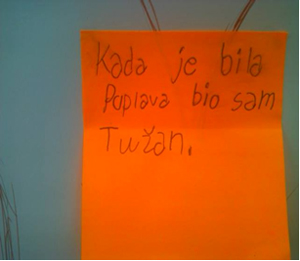 Kada je bila
Poplava bio sam
Tužan.